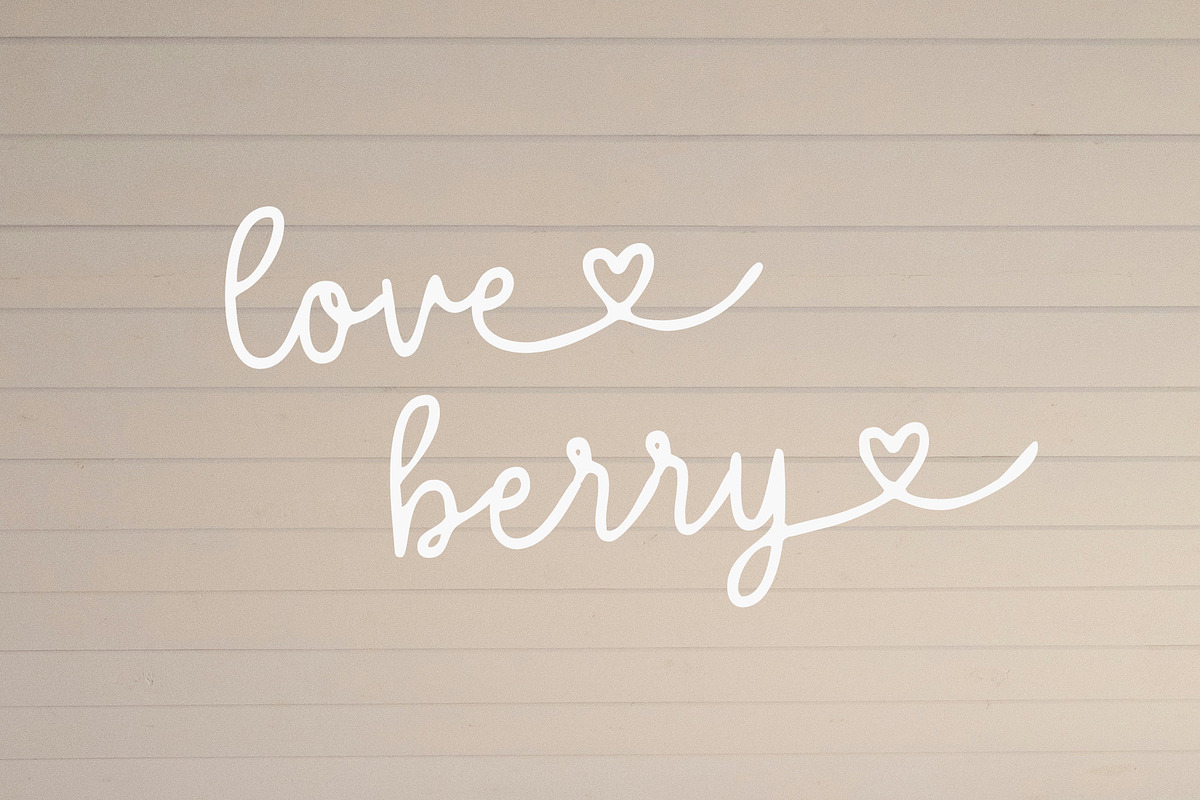 love
berry